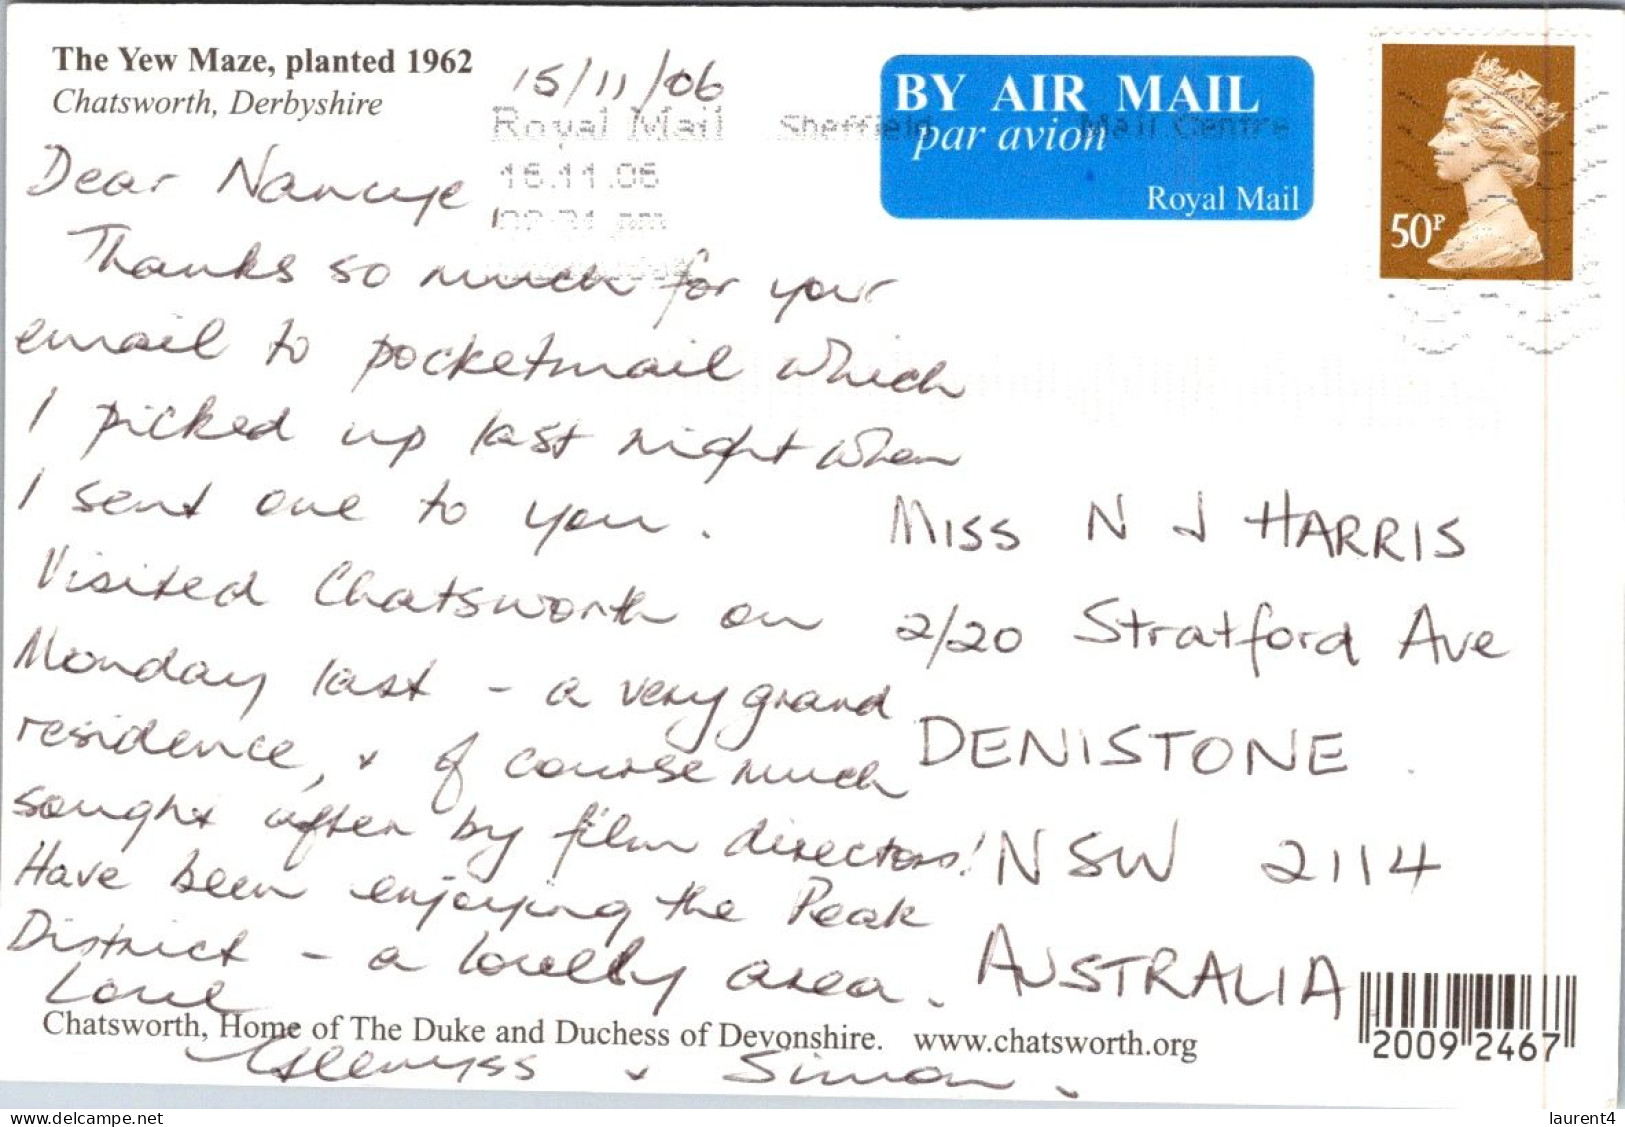 The Yew Maze, planted 1962
Chatsworth, Derbyshire
15/11/06
Royal Mail Sheffield Mail Centre
BY AIR MAIL
par avion
Royal Mail
50P
Dear Nancye
Thanks so much for your
email to pocketmail which
I picked up last night when
I sent one to you.
Visited Chatsworth on
Monday last - a very grand
residence, & of course much
sought after by film directors!
Have been enjoying the Peak
District - a lovely area.
Love
Glennyss & Simon.
Miss N J HARRIS
2/20 Stratford Ave
DENISTONE
NSW 2114
AUSTRALIA
Chatsworth, Home of The Duke and Duchess of Devonshire. www.chatsworth.org
2009 2467
delcampe.net
laurent4